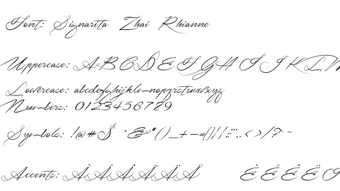 Font: Signarita Zhai Rhianne
Uppercase: A B C D E F G H I J K L M
Lowercase: abcdefghijklmnopqrstuvwxyz
Numbers: 0123456789
Symbols: !@#$ ^&*()_+-=[]{};:.,<>/?~
Accents: À Á Â Ã Ä Å È É Ê Ë